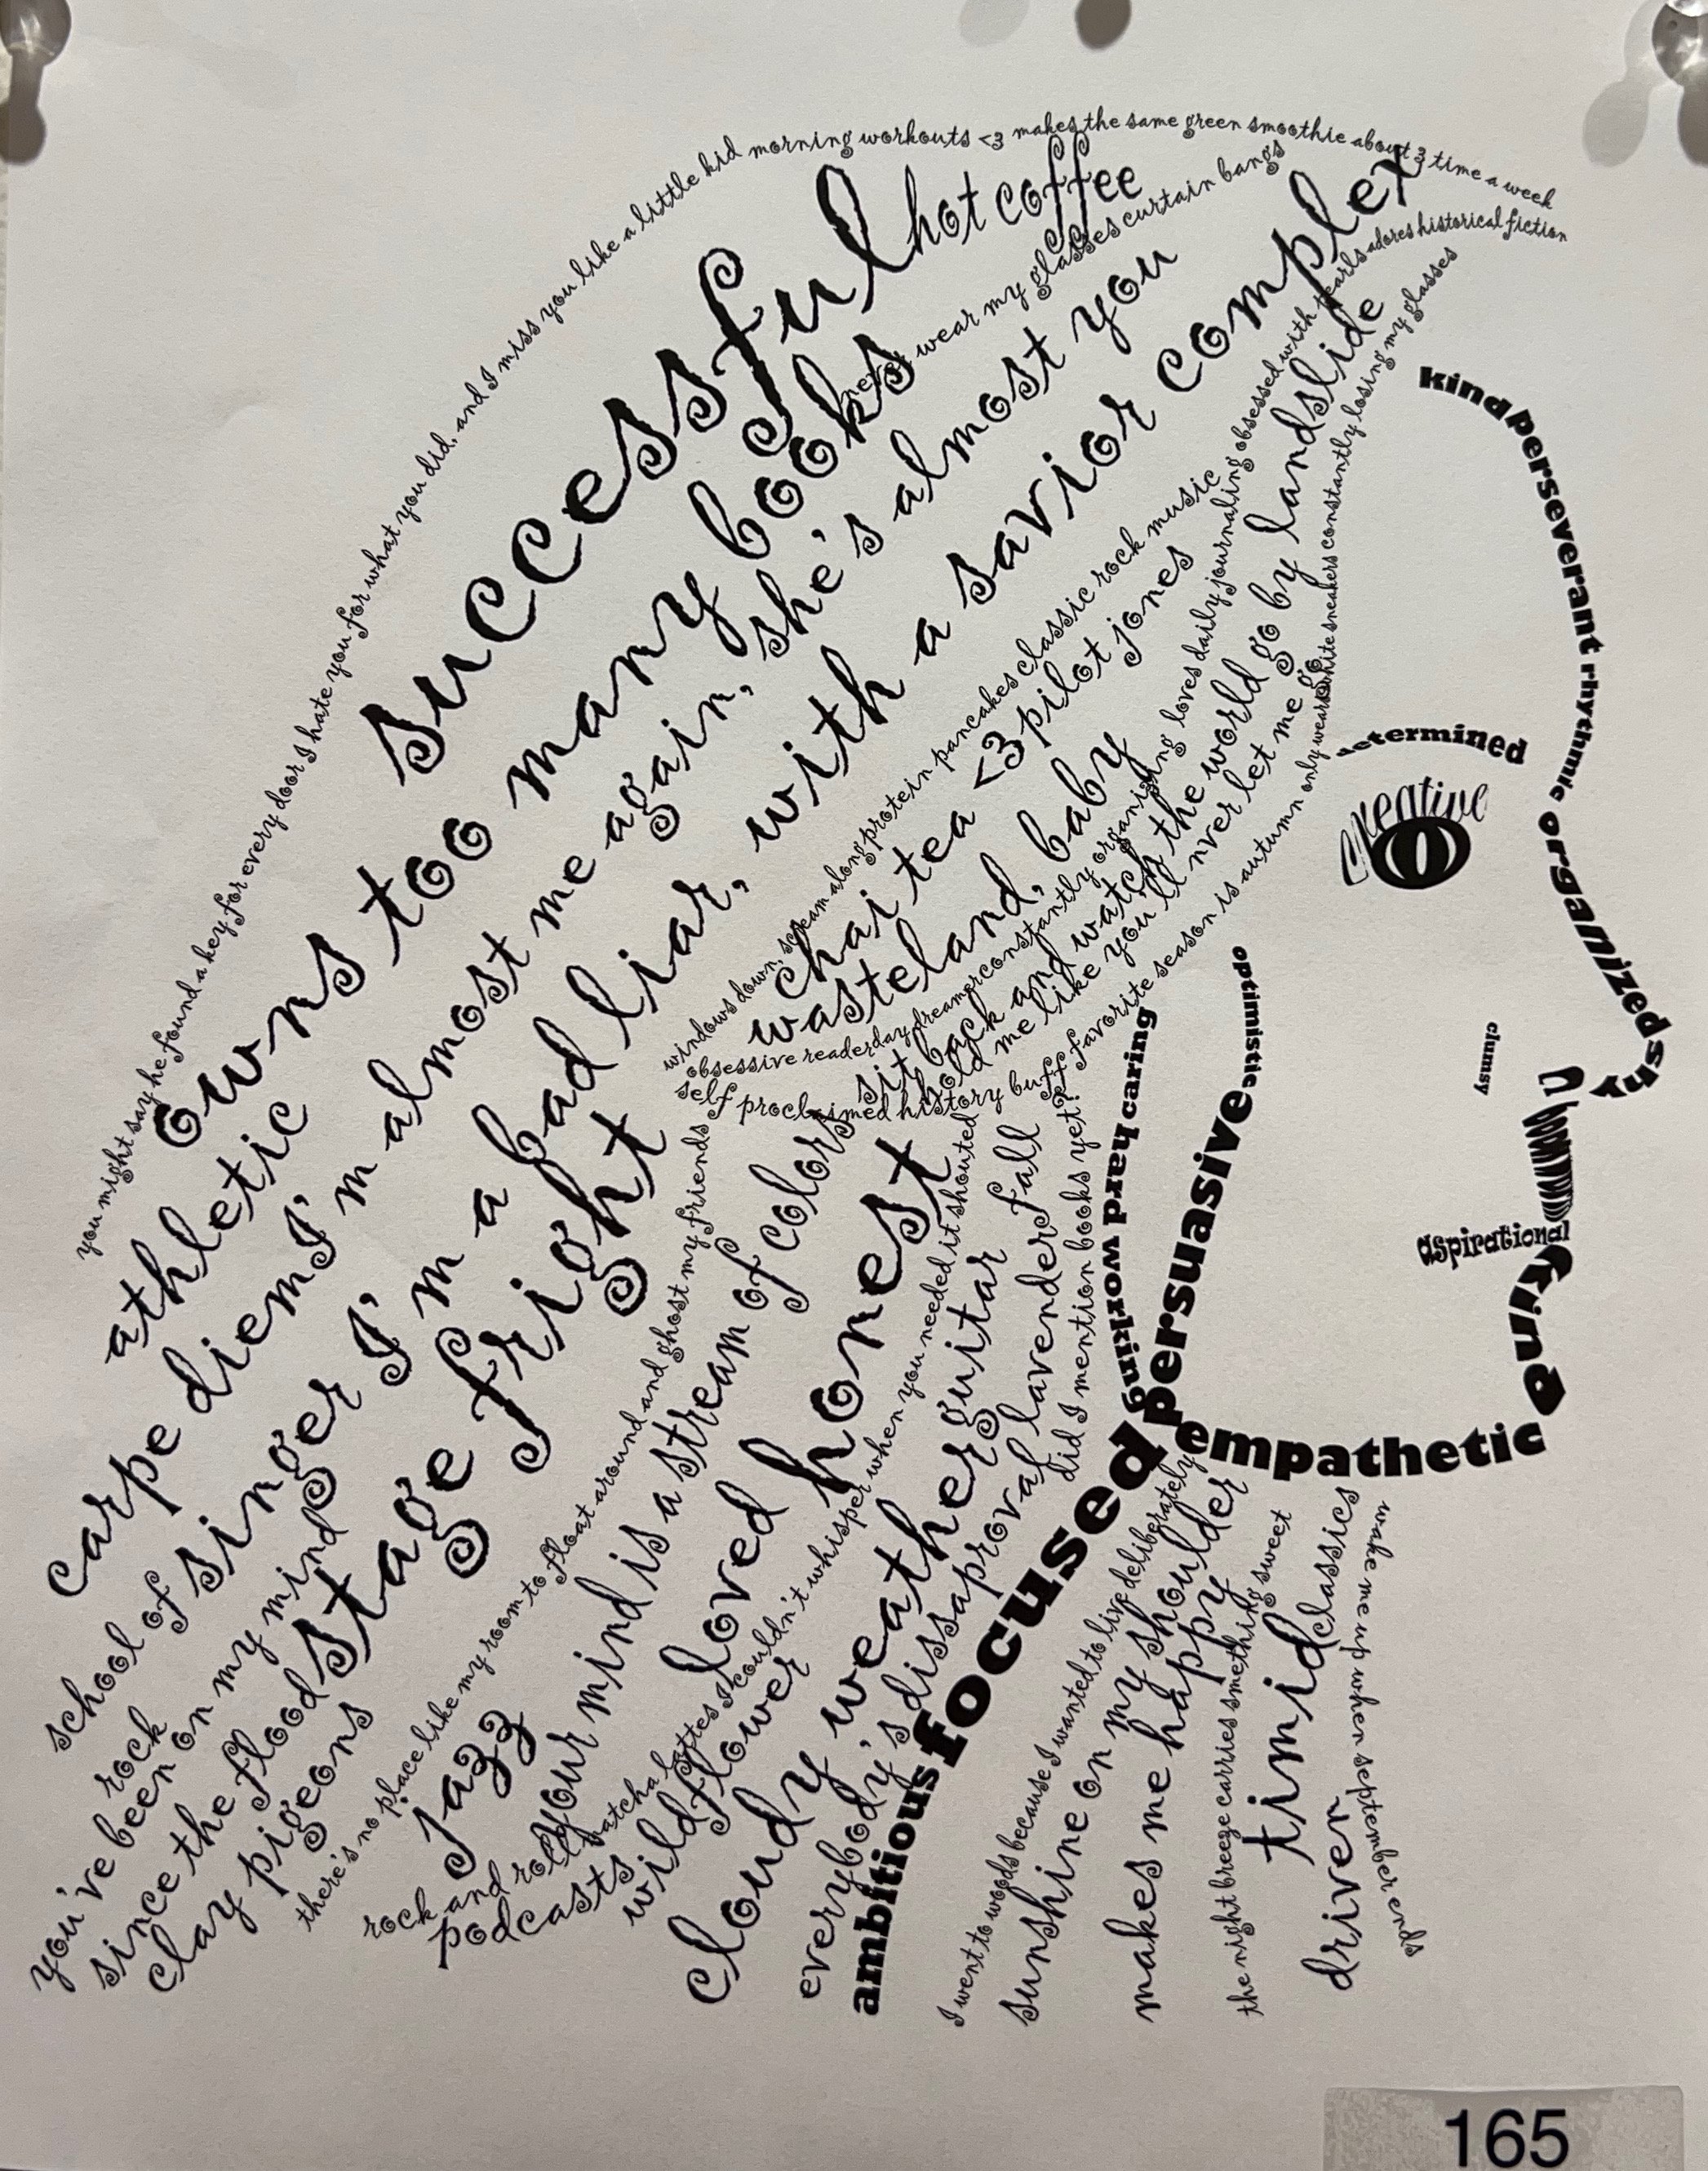 you might say he found a key for every door I hate you for what you did, and I miss you like a little kid morning workouts <3 makes the same green smoothie about 3 time a week
successful hot coffee
owns too many books never wear my glasses curtain bangs
athletic
carpe diem I'm almost me again, she's almost you
school of rock
singer I'm a bad liar, with a savior complex
you've been on my mind
since the flood
stage fright
clay pigeons
windows down, scream along protein pancakes classic rock music
chai tea <3 pilot jones
wasteland, baby
obsessive reader day dreamer constantly organizing loves daily journaling obsessed with pearls adores historical fiction
sit back and watch the world go by landslide
self proclaimed history buff
hold me like you'll nver let me go
favorite season is autumn only wears white sneakers constantly losing my glasses
there's no place like my room to float around and ghost my friends
jazz
rock and roll
your mind is a stream of colors
podcasts
matcha lattes I couldn't whisper when you needed it shouted
loved honest
wildflower
cloudy weather guitar
everybody's dissaproval lavender fall
did I mention books yet?
ambitious focused persuasive optimistic
hard working caring
kind perseverant rhythmic organized shy
determined
creative
clumsy
aspirational
kind
empathetic
I went to woods because I wanted to live deliberately
sunshine on my shoulder
makes me happy
the night breeze carries smething sweet
timid classics
driven
wake me up when september ends
165